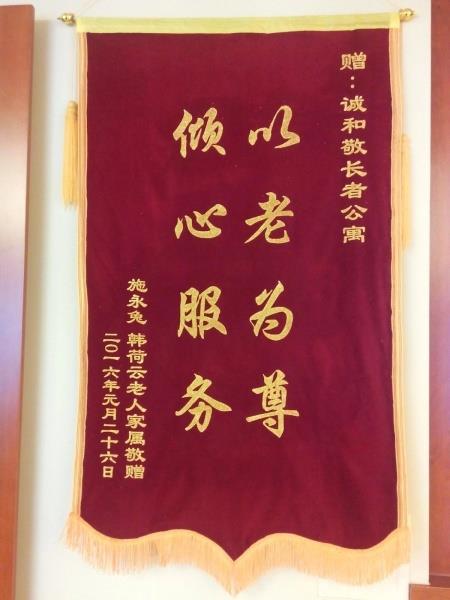 赠：诚和敬长者公寓
以老为尊
倾心服务
施永兔 韩荷云老人家属敬赠
二〇一六年元月二十六日